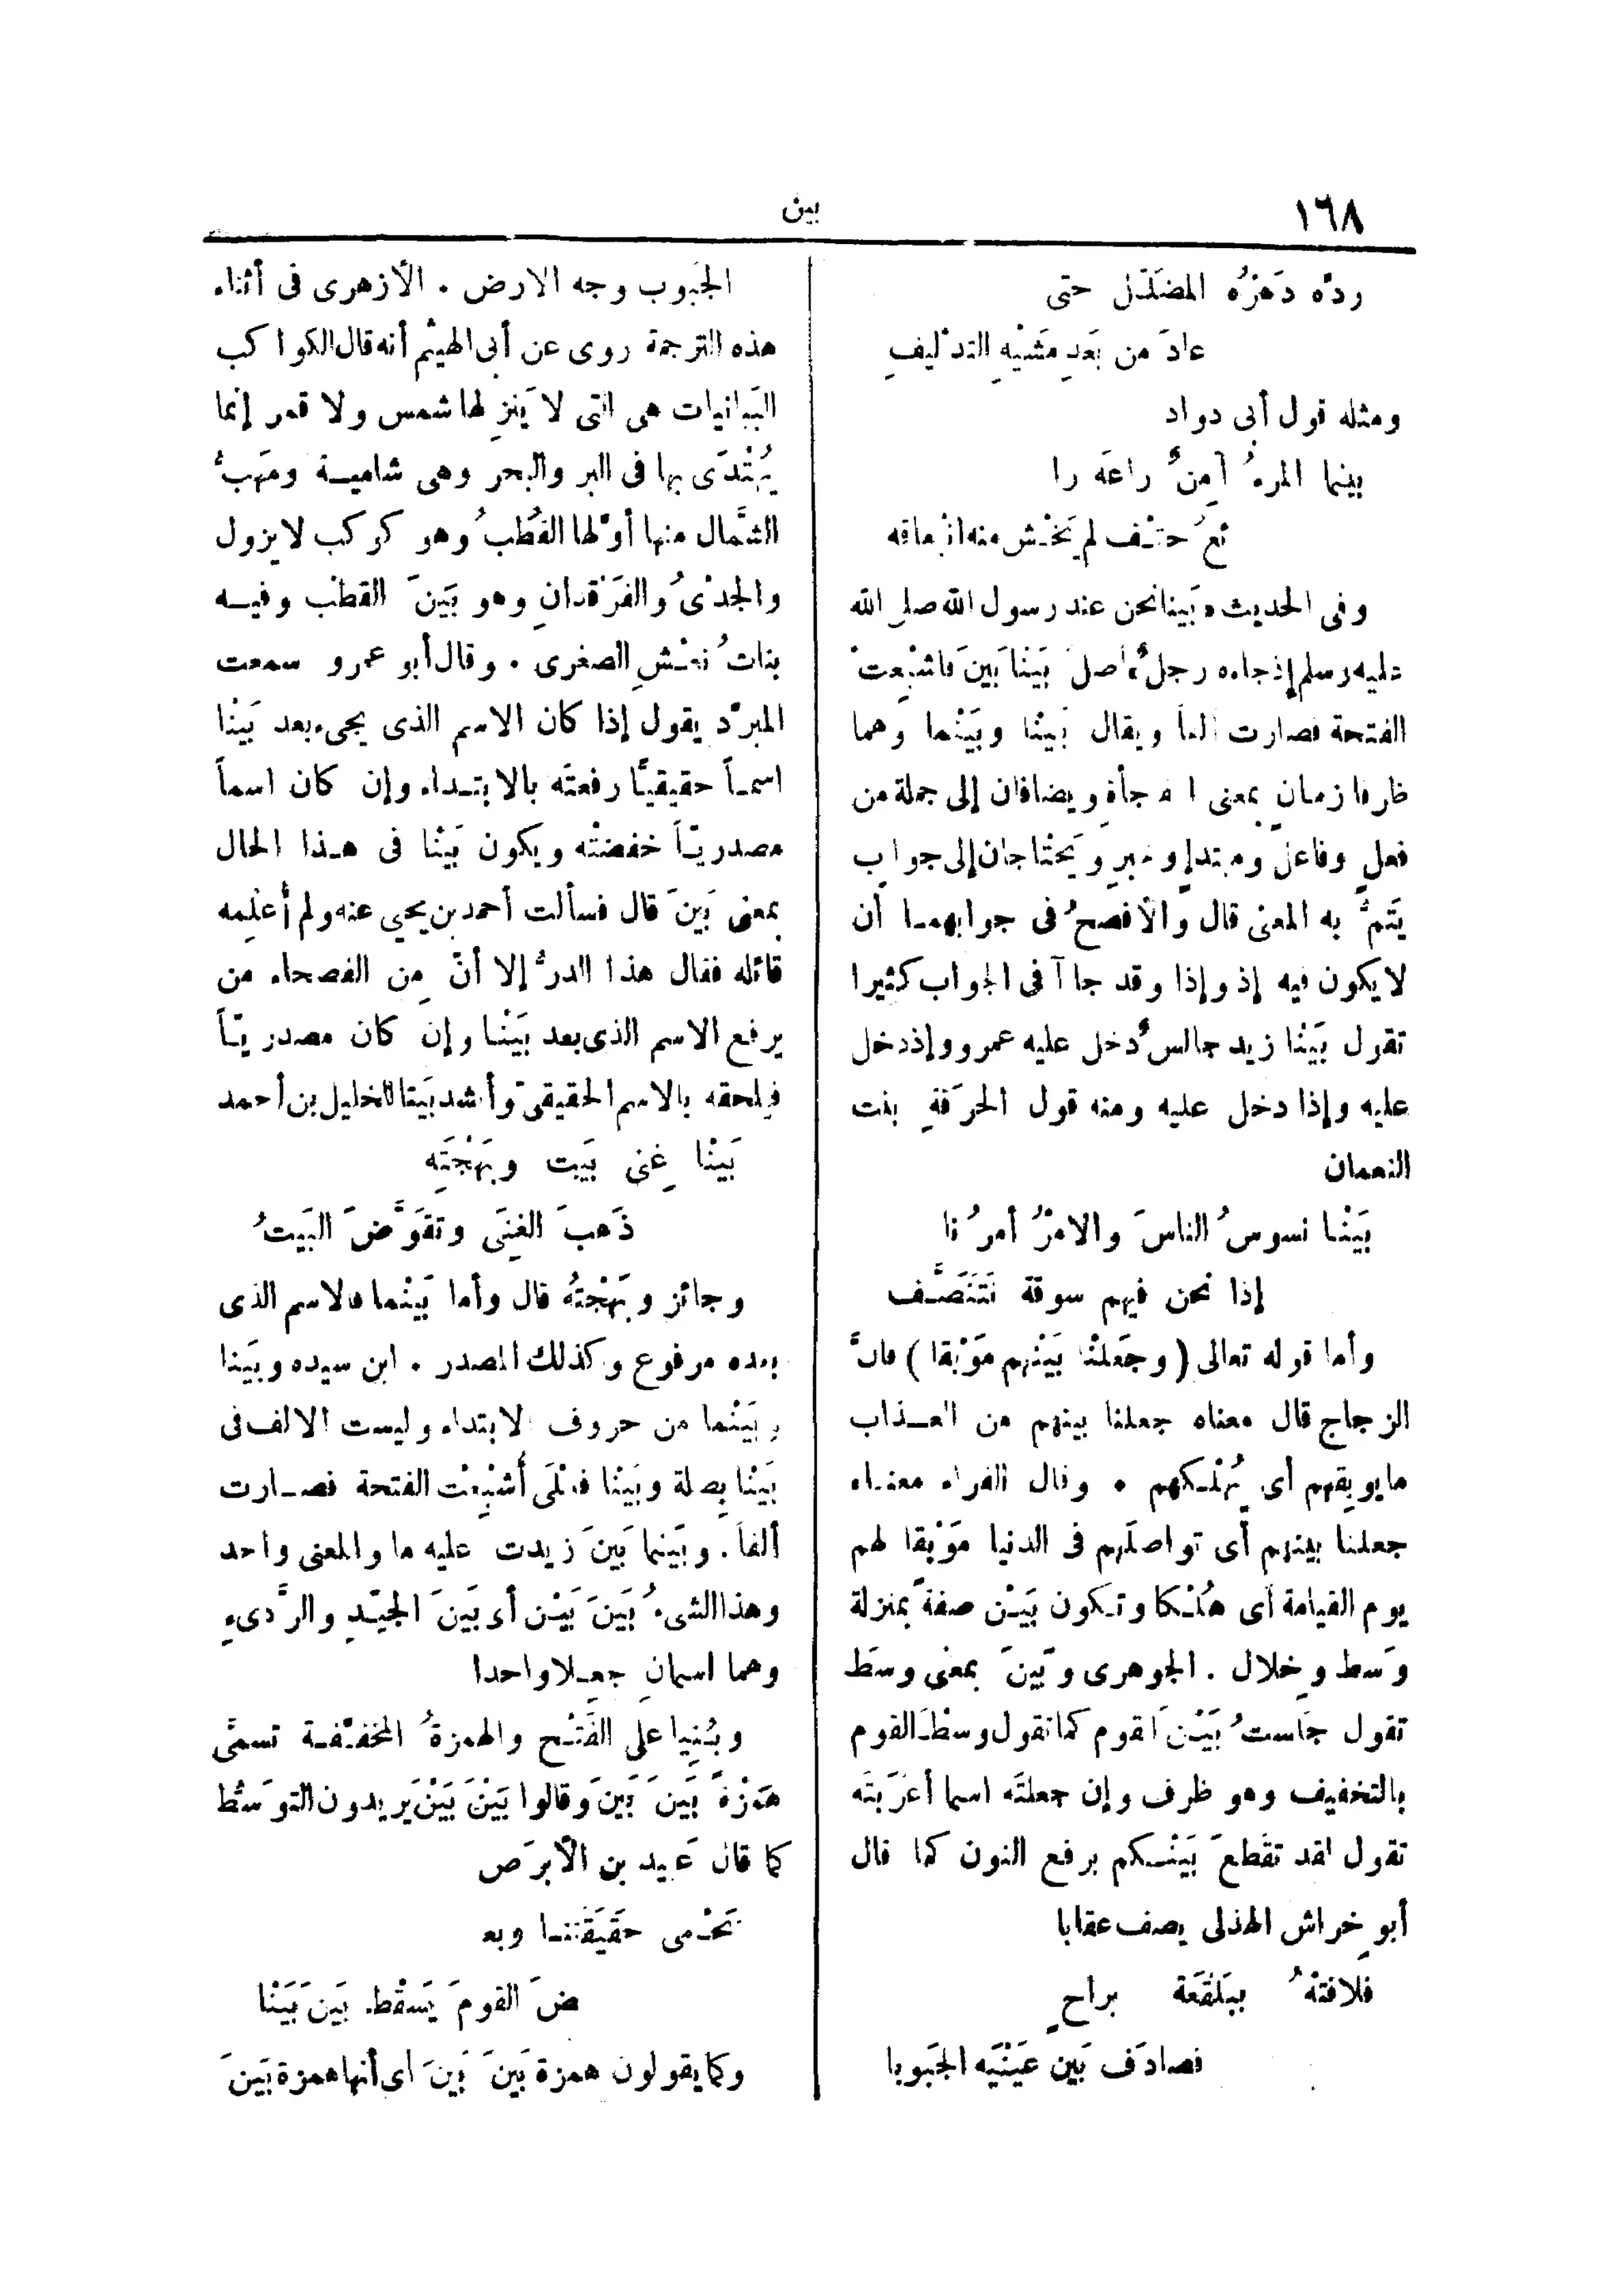 ١٦٨
بين
ردّه دَهرُه المضَلَّل حتى
عادَ من بَعدِ مَشْيِهِ التدْليفِ
ومثله قول أبى دواد
بينما المرءُ آمِنٌ راعَه را
ئعُ حتْف لم يَخْش منه انْبعاقه
وفى الحديث وبَينا نحن عند رسول الله صلى الله
عليه وسلم إذ جاءه رجلٌ، أصلُ بَيْنَا بَينَ فأشْبِعتْ
الفتحة فصارت ألفاً ويقال بَيْنَا وبَيْنَما وهما
ظرفا زمانٍ بمعنى المفاجأةِ ويضافان إلى جملة من
فعلٍ وفاعلٍ ومبتدإٍ وخبرٍ ويَحْتاجان إلى جوابٍ
يَتمُّ به المعنى قال والأفصحُ فى جوابهما أن
لا يكون فيه إذ وإذا وقد جاآ فى الجواب كثيرا
تقول بَيْنَا زيد جالسٌ دخل عليه عمرو وإذ دخل
عليه وإذا دخل عليه ومنه قول الحرَقَةِ بنت
النعمان
بَيْنَا نسوسُ الناسَ والامْرُ أمرُنا
إذا نحن فيهم سوقة نَتَنَصَّف
وأما قوله تعالى (وجَعَلْنَا بَيْنَهم مَوْبقا) فانَّ
الزجاج قال معناه جعلنا بينهم من العذاب
مايوبِقهم أى يُهْلِكهم . وقال الفراء معناه
جعلنا بينهم أى تواصلَهم فى الدنيا مَوْبِقا لهم
يوم القيامة أى هُلْكا وتكون بَيْن صفةً بمنزلة
وَسط وخِلال . الجوهرى وبَينَ بمعنى وسَط
تقول جَلستُ بَيْنَ القوم كما تقول وسْطَ القوم
بالتخفيف وهو ظرف وإن جعلتَه اسما أعْرَبتَه
تقول لقد تقَطعَ بَيْنُكم برفع النون كما قال
أبو خِراش الهذلى يصف عقابا
فلاقتْهُ ببَلْقَعَة براحٍ
فصادَف بَين عَيْنَيْه الجَبوبا
الجَبوب وجه الارض . الأزهرى فى أثناء
هذه الترجمة روى عن أبى الهيثم أنه قال الكواكب
البَبانيات هى التى لا يَنزِلها شمس ولا قمر إنما
يُهْتَدَى بها فى البر والبحر وهى شامية ومَهبُّ
الشَّمال منها أوّلها القُطْبُ وهو كوكب لا يزول
والجدْىُ والفَرْقدانِ وهو بَينَ القطْب وفيه
بناتُ نعْشٍ الصغرى . وقال أبو عمرو سمعت
المبرّد يقول إذا كان الاسم الذى يجىء بعد بَيْنَا
اسماً حقيقيّا رفعتَه بالابتداء وإن كان اسماً
مصدريّاً خفضْتَه ويكون بَيْنَا فى هذا الحال
بمعنى بَينَ قال فسألت أحمد بن يحيى عنه ولم أعْلِمه
قائله فقال هذا الدرُّ إلا أنّ مِن الفصحاء من
يرفع الاسم الذى بعد بَيْنَا وإن كان مصدريّاً
فيلحقه بالاسم الحقيقىّ وأنشد بَيتا للخليل بن أحمد
بَيْنَا غِنى بَيت وبَهْجَتِه
ذَهبَ الغِنَى وتقَوَّضَ البَيتُ
وجائز وبَهْجتُه قال وأما بَيْنَما فالاسم الذى
بعده مرفوع وكذلك المصدر . ابن سيده وبَيْنا
وبَيْنَما من حروف الابتداء وليست الالف فى
بَيْنَا بصلة وبَيْنَا فعْلَى أشْبِعْت الفتحة فصارت
ألفاً . وبَينما بَينَ زيدت عليه ما والمعنى واحد
وهذا الشىءُ بَينَ بَيْن أى بَينَ الجيّدِ والرَّدىءِ
وهما اسمانِ جعلا واحدا
وبُنِيا على الفَتْح والهمزةُ المخففة تسمَّى
هَمْزَةَ بَينَ بَينَ وقالوا بَيْنَ بَيْنَ يريدون التوَسُّط
كما قال عَبيد بن الأبرَص
نَحْمى حقَيقَتَنا وبع
ضَ القومَ يَسقْط بَين بَيْنَا
وكما يقولون همزة بَينَ بَينَ اى أنها همزة بَينَ